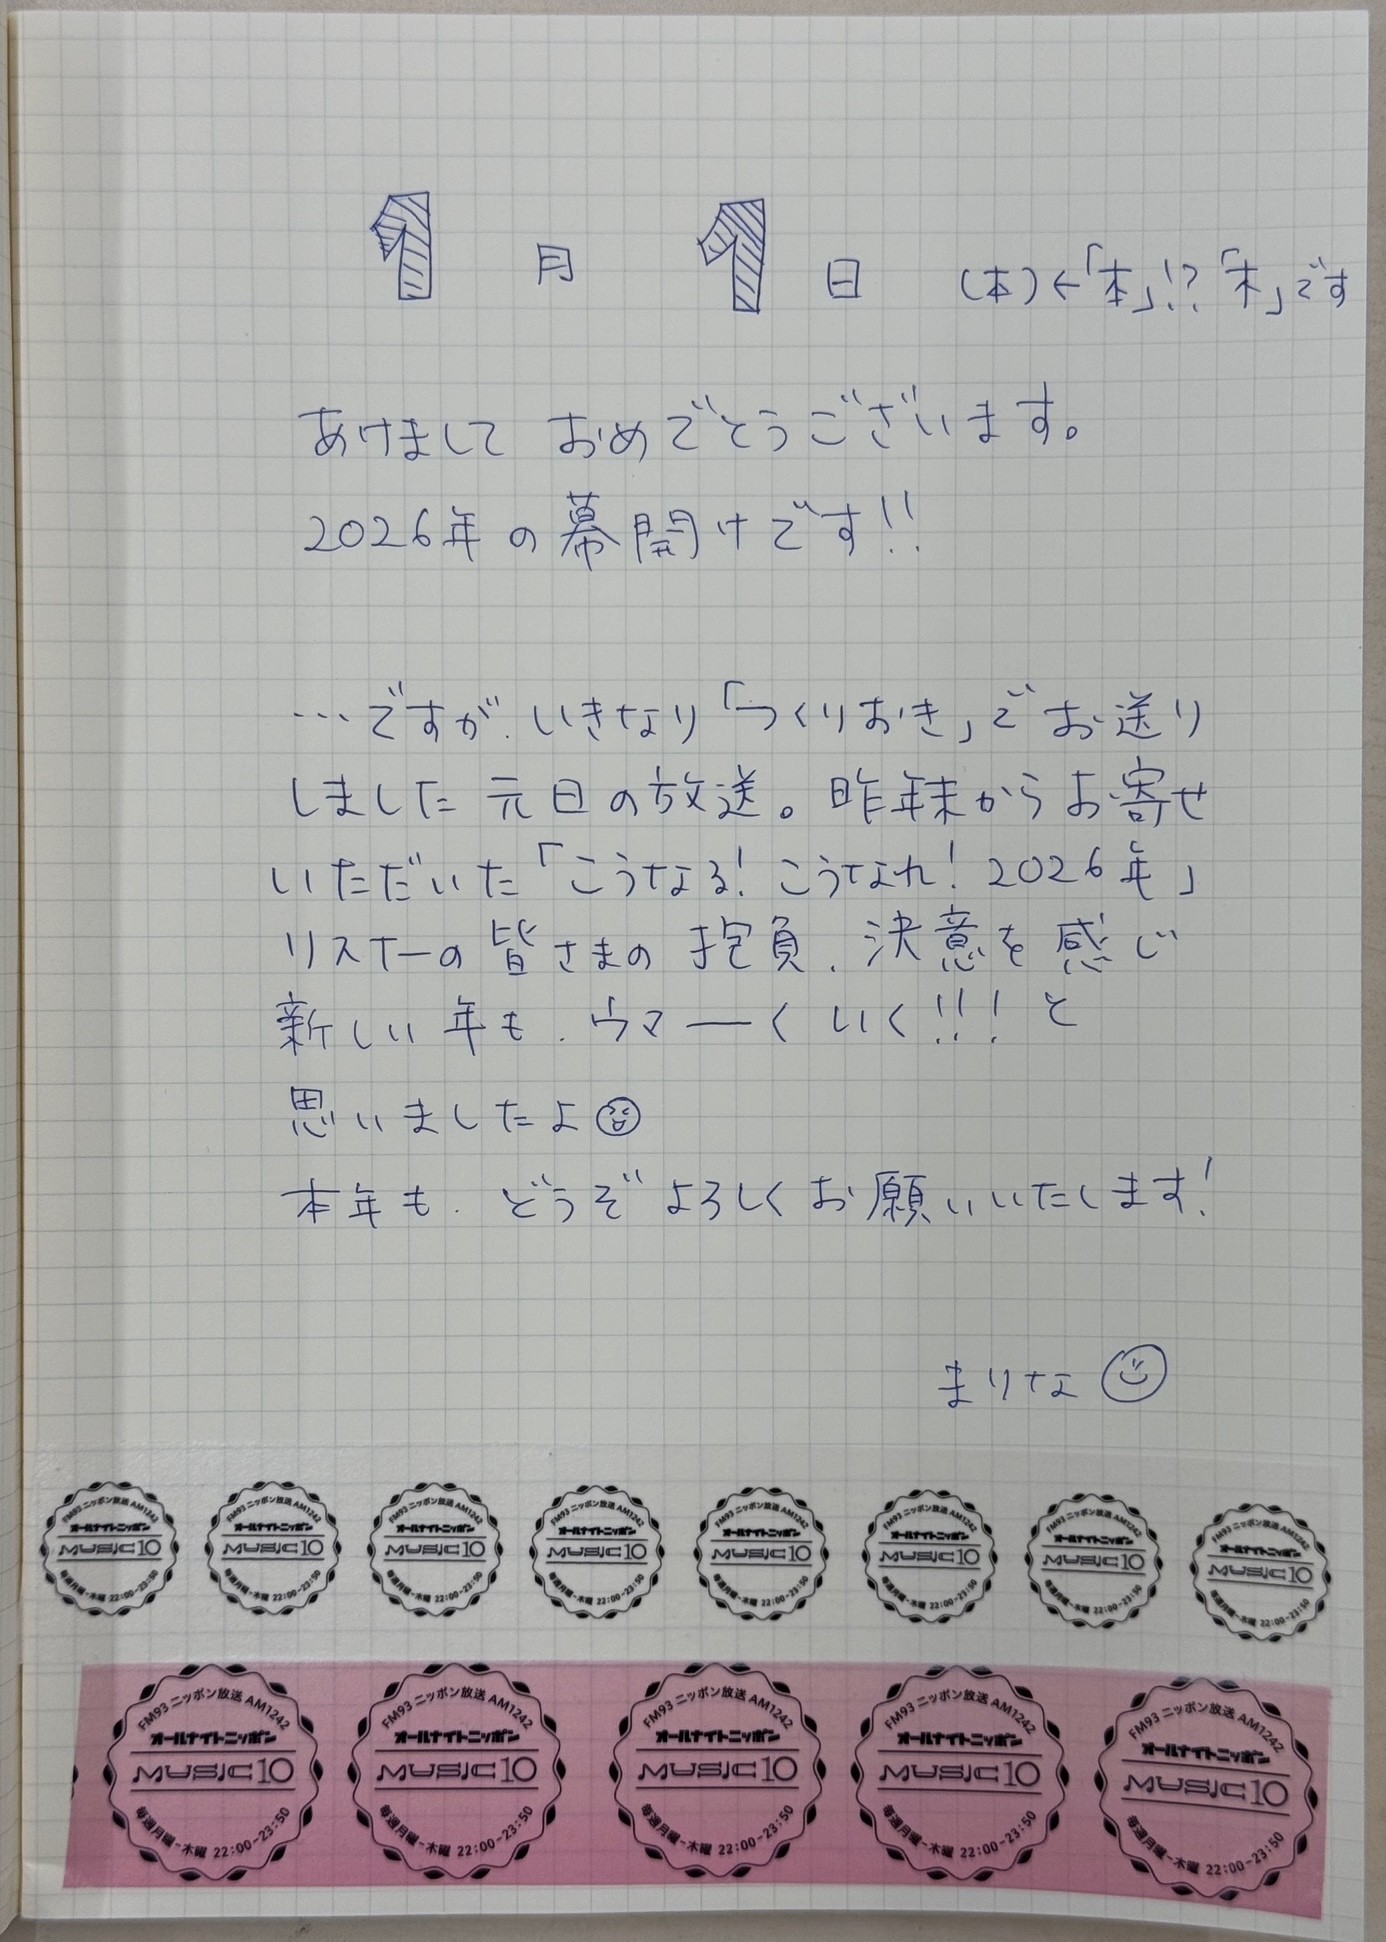 1月1日(本)←「本」!?「木」です
あけまして おめでとうございます。
2026年の幕開けです!!
…ですが、いきなり「つくりおき」でお送り
しました元日の放送。昨年末からお寄せ
いただいた「こうなる!こうなれ!2026年」
リスナーの皆さまの抱負、決意を感じ
新しい年も、ウマーくいく!!!と
思いましたよ
本年も、どうぞよろしくお願いいたします!
まりな
FM93 ニッポン放送 AM1242 オールナイトニッポン MUSIC10 毎週月曜-木曜 22:00-23:50
FM93 ニッポン放送 AM1242 オールナイトニッポン MUSIC10 毎週月曜-木曜 22:00-23:50
FM93 ニッポン放送 AM1242 オールナイトニッポン MUSIC10 毎週月曜-木曜 22:00-23:50
FM93 ニッポン放送 AM1242 オールナイトニッポン MUSIC10 毎週月曜-木曜 22:00-23:50
FM93 ニッポン放送 AM1242 オールナイトニッポン MUSIC10 毎週月曜-木曜 22:00-23:50
FM93 ニッポン放送 AM1242 オールナイトニッポン MUSIC10 毎週月曜-木曜 22:00-23:50
FM93 ニッポン放送 AM1242 オールナイトニッポン MUSIC10 毎週月曜-木曜 22:00-23:50
FM93 ニッポン放送 AM1242 オールナイトニッポン MUSIC10 毎週月曜-木曜 22:00-23:50
FM93 ニッポン放送 AM1242 オールナイトニッポン MUSIC10 毎週月曜-木曜 22:00-23:50
FM93 ニッポン放送 AM1242 オールナイトニッポン MUSIC10 毎週月曜-木曜 22:00-23:50
FM93 ニッポン放送 AM1242 オールナイトニッポン MUSIC10 毎週月曜-木曜 22:00-23:50
FM93 ニッポン放送 AM1242 オールナイトニッポン MUSIC10 毎週月曜-木曜 22:00-23:50
FM93 ニッポン放送 AM1242 オールナイトニッポン MUSIC10 毎週月曜-木曜 22:00-23:50